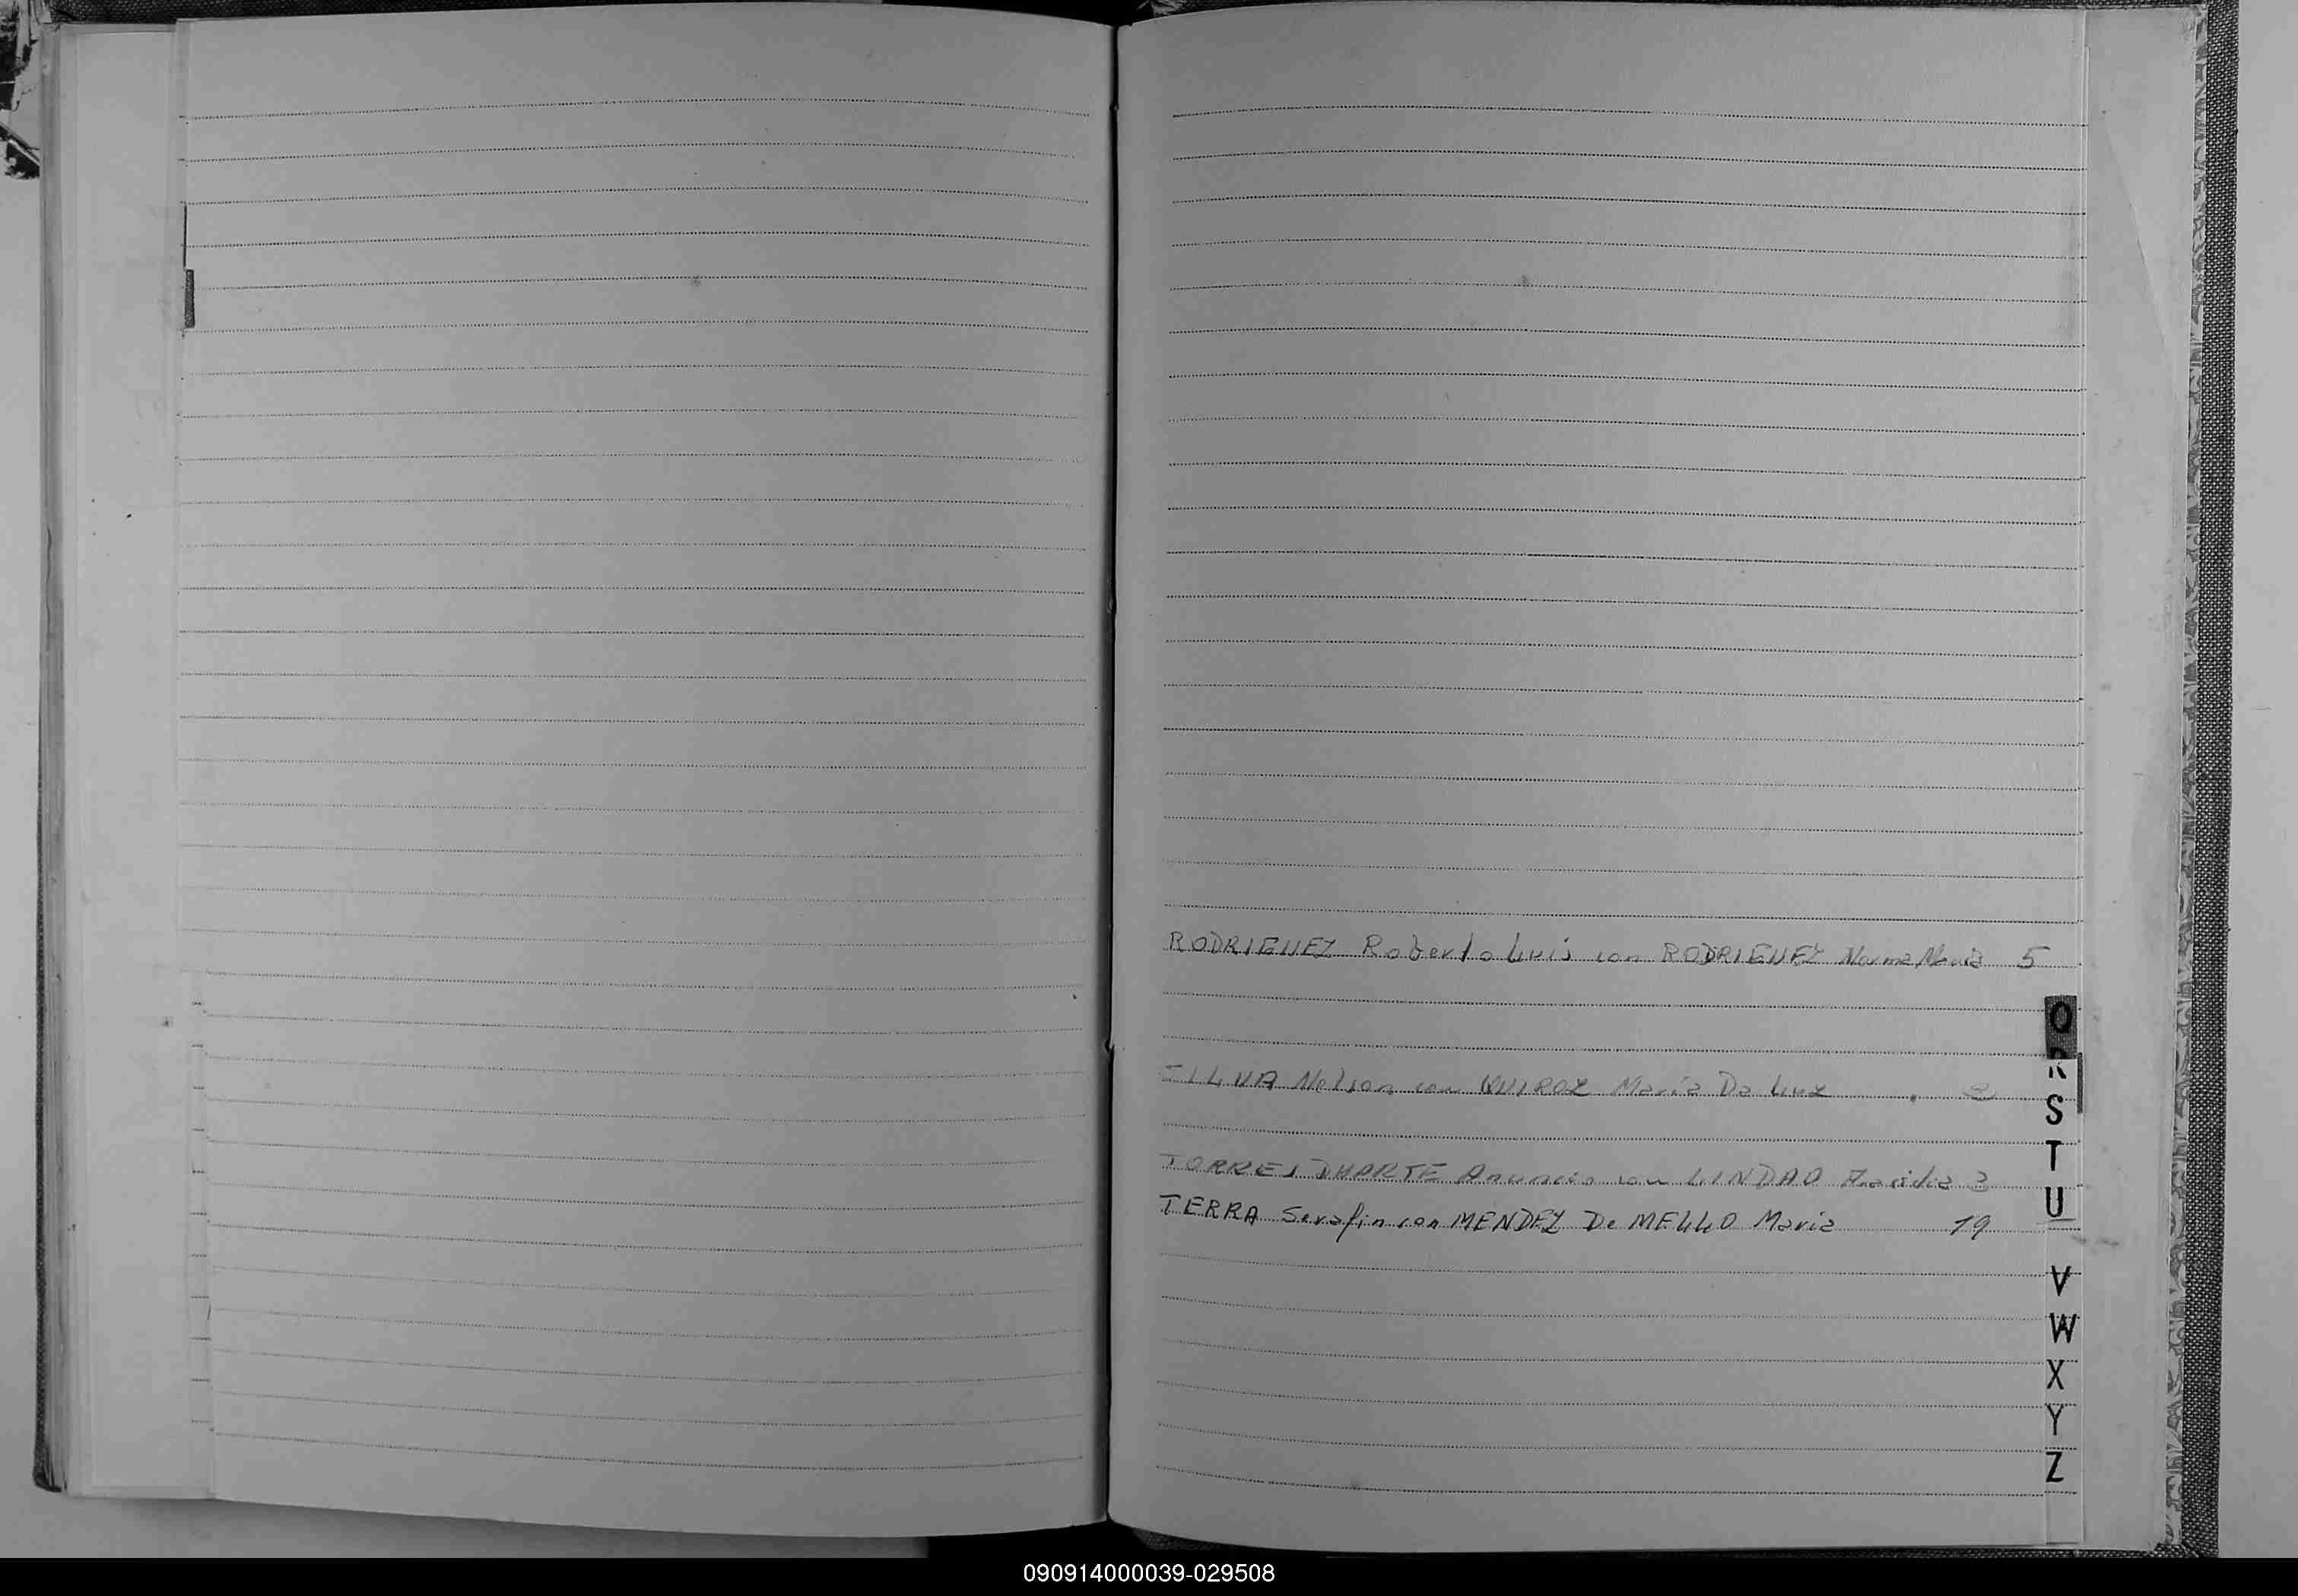 RODRIGUEZ Roberto Luis con RODRIGUEZ Norma Maria 5
Q
R
SILVA Nelson con QUIROZ Maria Da Luz 2
S
T
TORRES DUARTE Anuncio con LINDAO 3
U
TERRA Serafin con MENDEZ De MELLO Maria 19
V
W
X
Y
Z
090914000039-029508